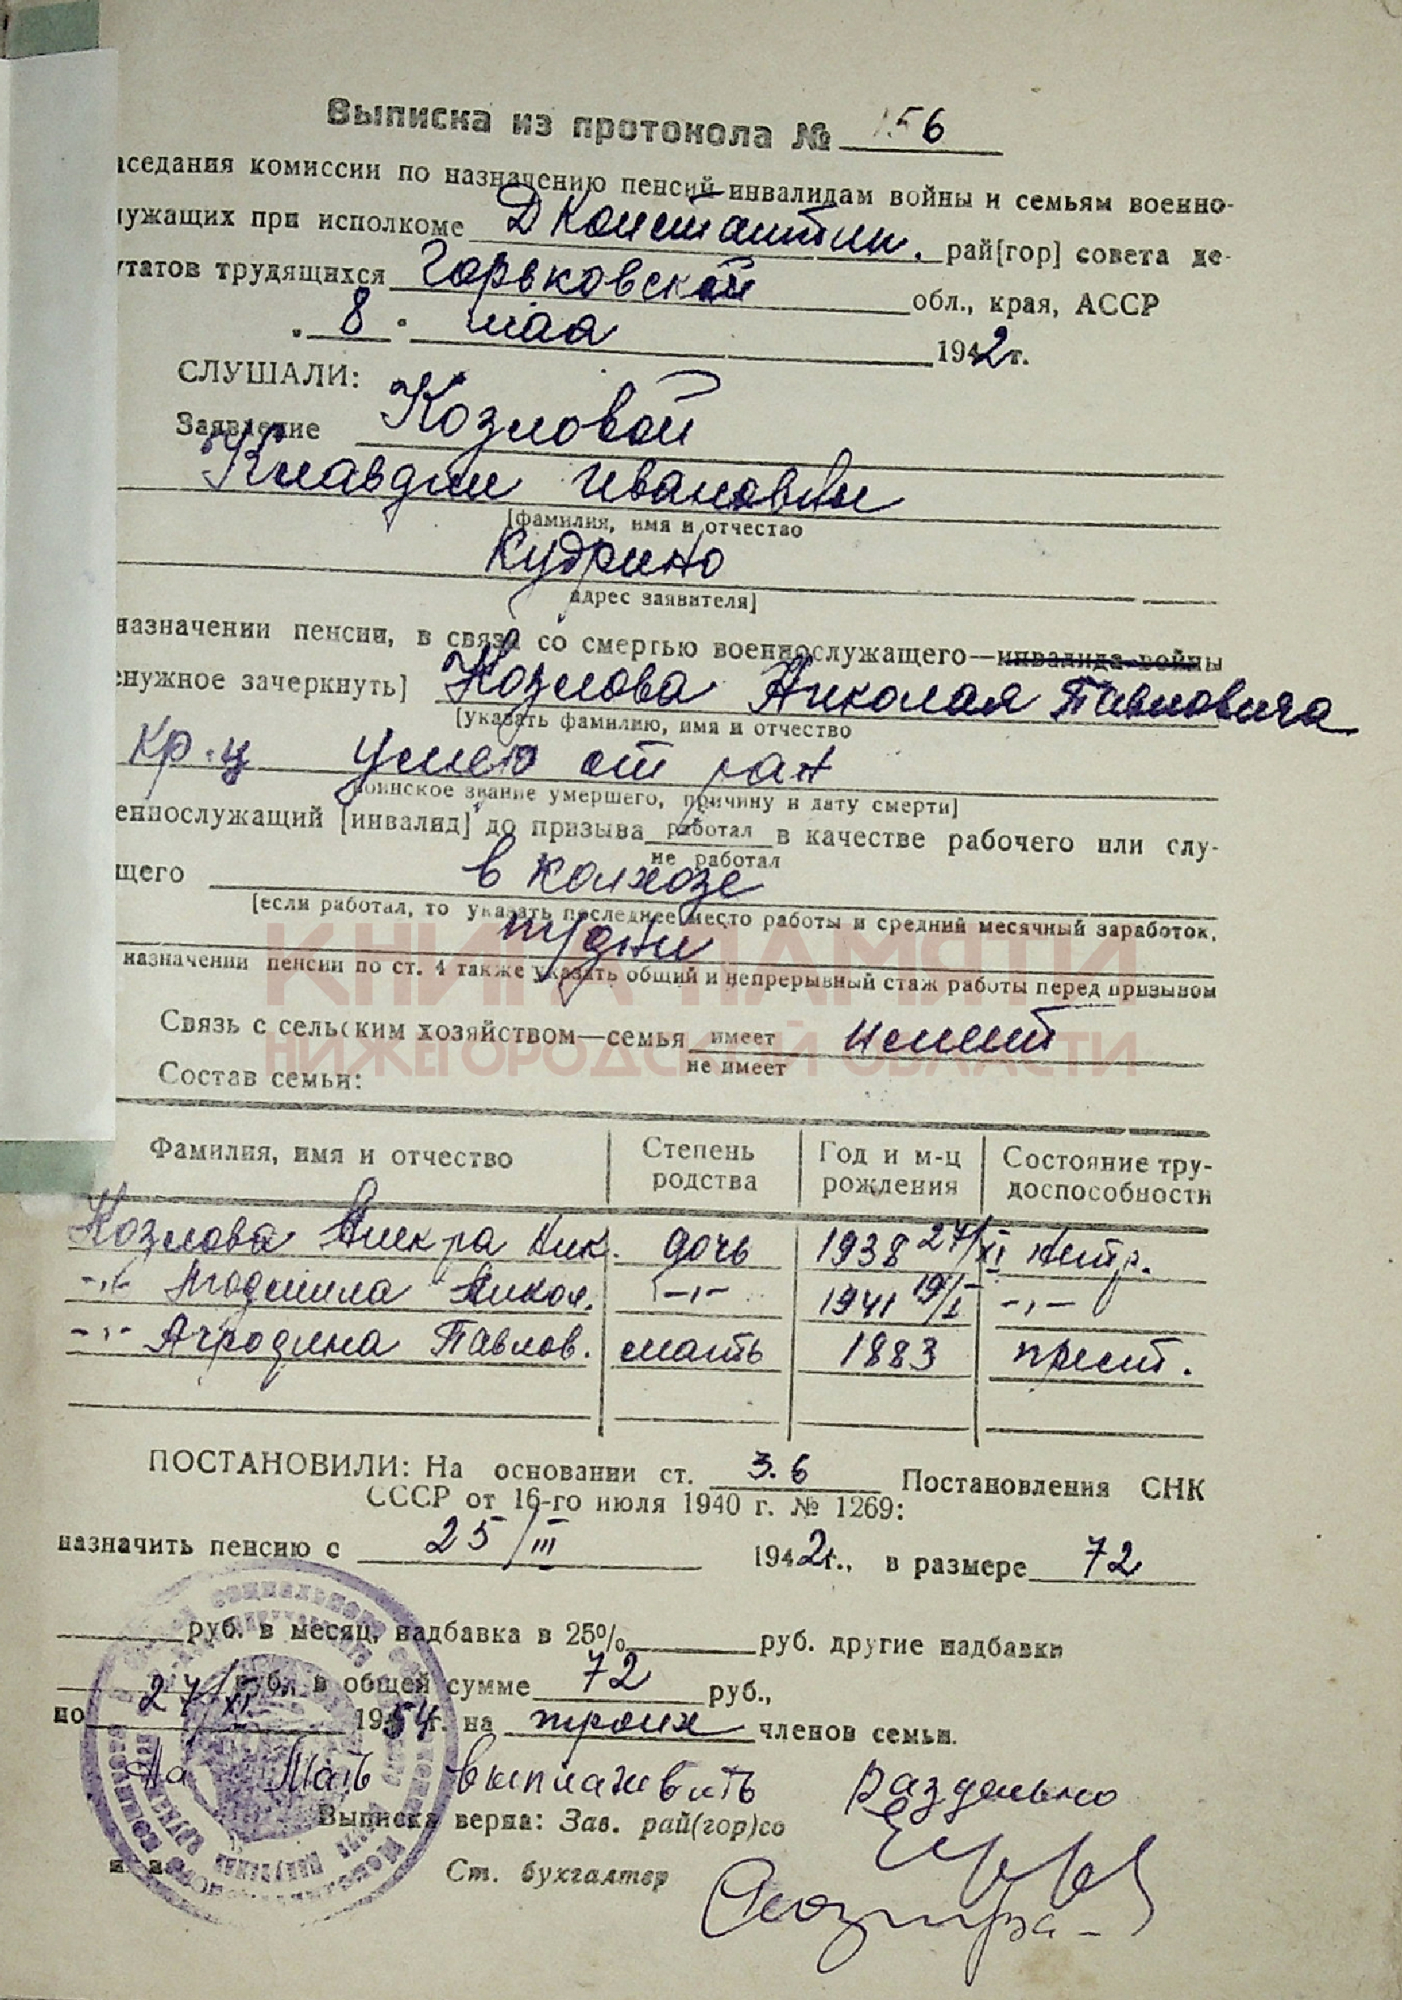 Выписка из протокола № 156
аседания комиссии по назначению пенсий инвалидам войны и семьям военно-
лужащих при исполкоме Д Константин. рай[гор] совета де-
утатов трудящихся Горьковской обл., края, АССР
„ 8 " мая 1942 г.
СЛУШАЛИ:
Заявление Козловой
Клавдии Ивановны
[фамилия, имя и отчество
Кудрино
адрес заявителя]
назначении пенсии, в связи со смертью военнослужащего—инвалида войны
енужное зачеркнуть] Козлова Николая Павловича
[указать фамилию, имя и отчество
Кр-ц умер от ран
воинское звание умершего, причину и дату смерти]
еннослужащий [инвалид] до призыва работал в качестве рабочего или слу-
не работал
щего в колхозе
[если работал, то указать последнее место работы и средний месячный заработок,
тр/дни
назначении пенсии по ст. 4 также указать общий и непрерывный стаж работы перед призывом
КНИГА ПАМЯТИ
НИЖЕГОРОДСКОЙ ОБЛАСТИ
Связь с сельским хозяйством—семья имеет имеет
не имеет
Состав семьи:
Фамилия, имя и отчество Степень родства Год и м-ц рождения Состояние тру-
доспособности
Козлова Алек-ра Ник. дочь 1938 27/XI нетр.
-"- Людмила Никол. -"- 1941 19/I -"-
-"- Агродина Павлов. мать 1883 прест.
ПОСТАНОВИЛИ: На основании ст. 3.6 Постановления СНК
СССР от 16-го июля 1940 г. № 1269:
назначить пенсию с 25/III 1942 г., в размере 72
руб. в месяц, надбавка в 25% руб. другие надбавки
рубл. в общей сумме 72 руб.,
по 27/XI 1954 г. на троих членов семьи.
На Мать выплачивать раздельно
Выписка верна: Зав. рай(гор)со
Ст. бухгалтер